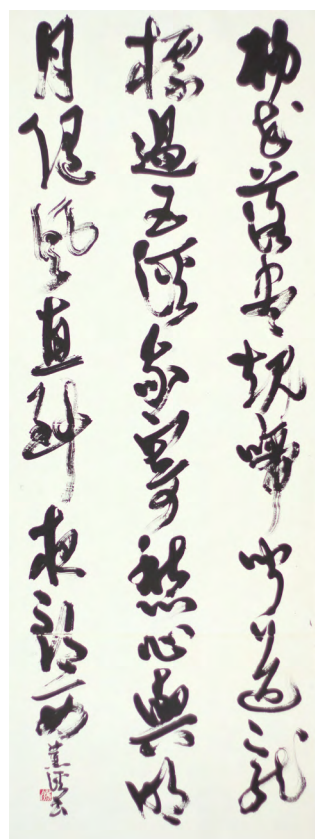 楊花落盡子規啼聞道龍
標過五溪我寄愁心與明
月隨風直到夜郎西